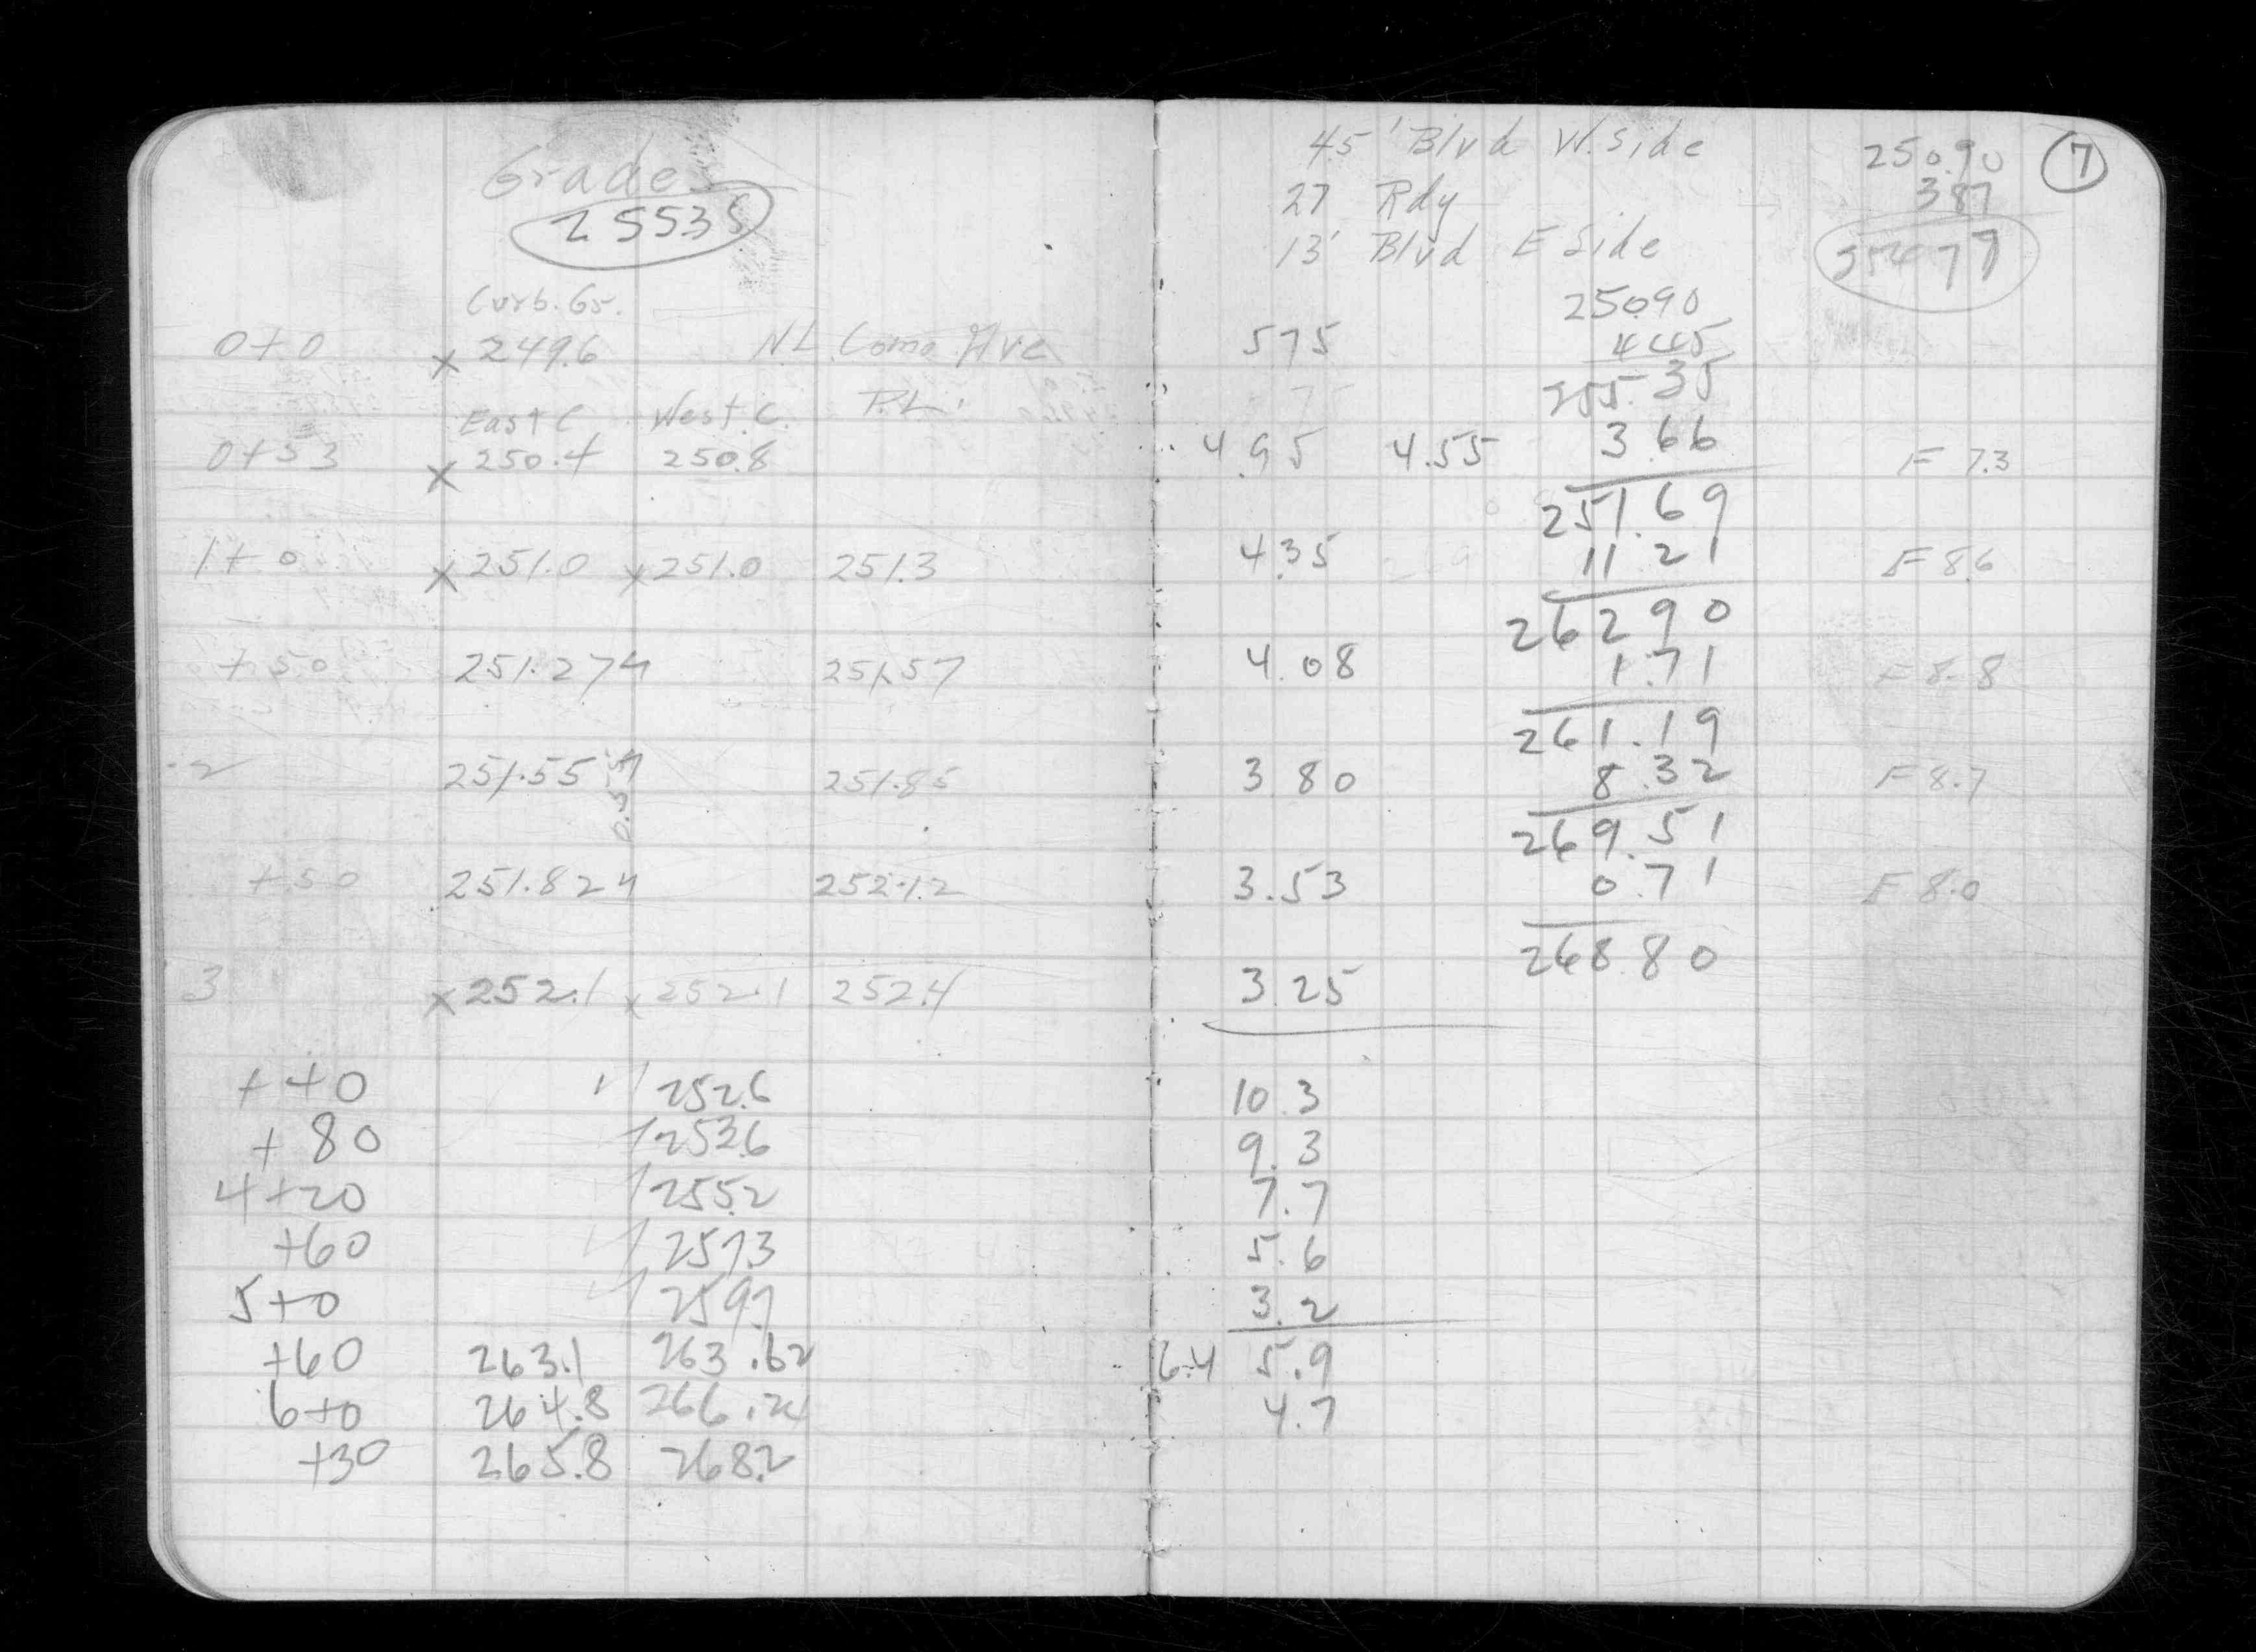 Grade
255.35
Curb. Gr.
0+0 x 249.6 N.L. Como Ave
East C West. C. P.L.
0+53 x 250.4 250.8
1+0 x 251.0 x 251.0 251.3
+50 251.274 251.57
2 251.55 251.85
+50 251.824 252.12
3 x 252.1 x 252.1 252.4
+40 252.6
+80 253.6
4+20 255.2
+60 257.3
5+0 259.7
+60 263.1 263.62
6+0 264.8 266.24
+30 265.8 268.2
45' Blvd W. Side
27 Rdy
13' Blvd E Side
250.90
3.87
254.77
7
250.90
5.75 4.45
255.35
4.95 4.55 3.66 F 7.3
251.69
4.35 11.21 F 8.6
262.90
4.08 1.71 F 8.8
261.19
3.80 8.32 F 8.7
269.51
3.53 0.71 F 8.0
268.80
3.25
10.3
9.3
7.7
5.6
3.2
6.4 5.9
4.7